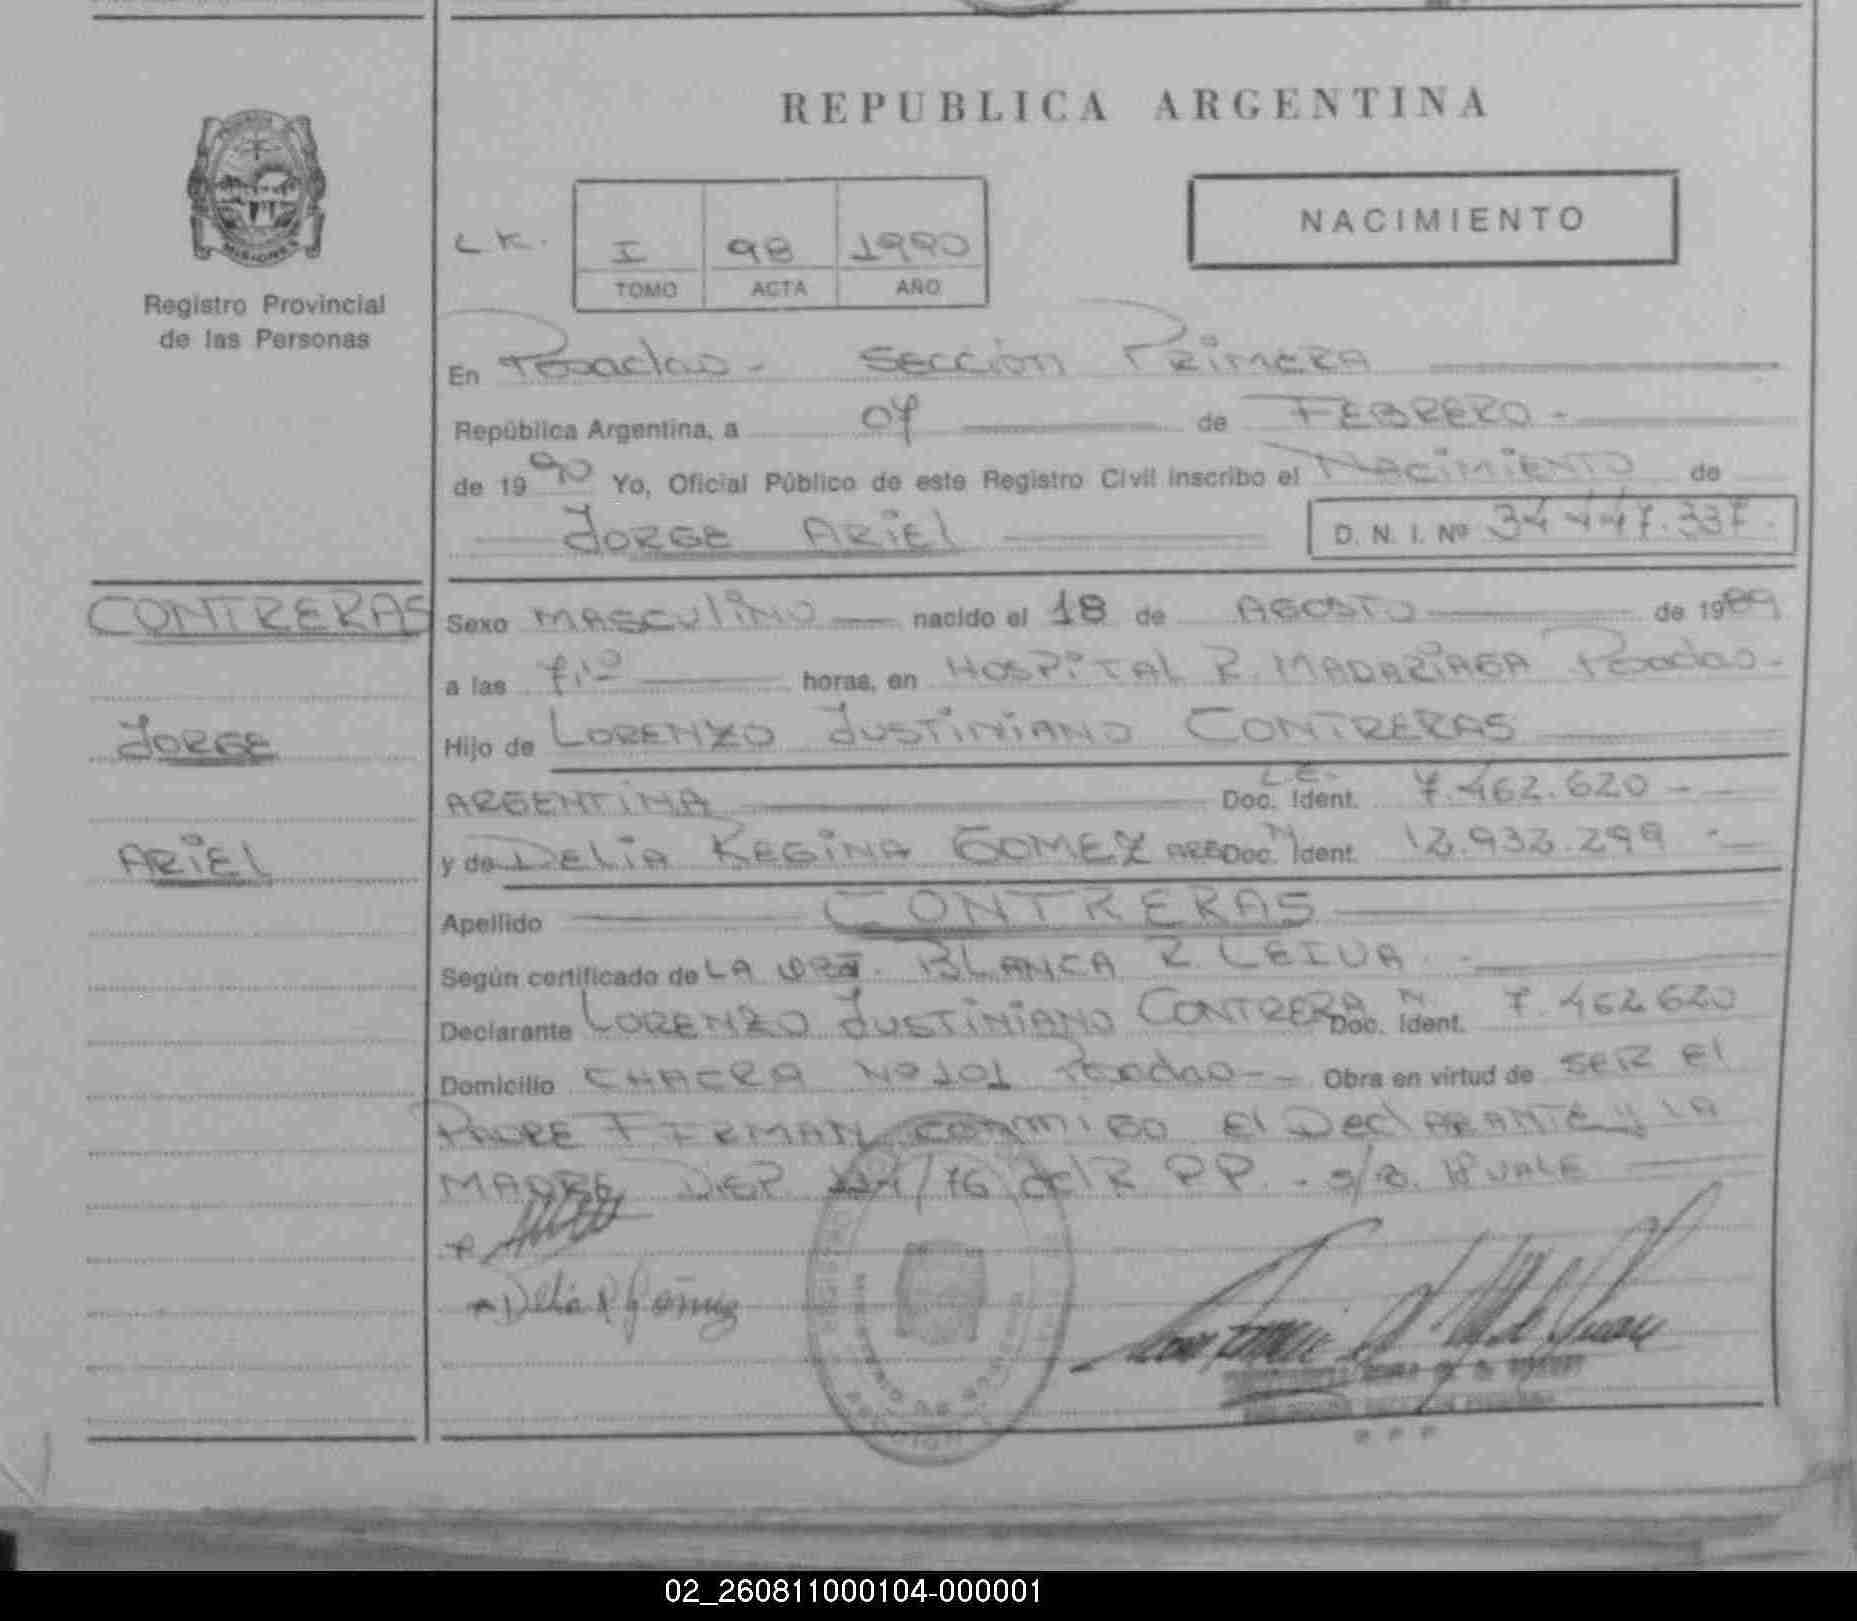 REPUBLICA ARGENTINA
MISIONES
Registro Provincial
de las Personas
L.K.
I 98 1990
TOMO ACTA AÑO
NACIMIENTO
En Posadas - SECCION PRIMERA
República Argentina, a 07 de FEBRERO -
de 1990 Yo, Oficial Público de este Registro Civil inscribo el NACIMIENTO de
JORGE ARIEL D. N. I. Nº 34 447.337.
CONTRERAS
JORGE
ARIEL
Sexo MASCULINO nacido el 18 de AGOSTO de 1989
a las 7,10 horas, en HOSPITAL R. MADARIAGA Posadas -
Hijo de LORENZO JUSTINIANO CONTRERAS
ARGENTINA L.E. Doc. Ident. 7.462.620 -
y de DELIA REGINA GOMEZ ARG Doc. Ident. 12.932.299 -
Apellido CONTRERAS
Según certificado de LA BLANCA R. LEIVA. -
Declarante LORENZO JUSTINIANO CONTRERA Doc. Ident. 7.462620
Domicilio CHACRA Nº 101 Posadas - Obra en virtud de SER El
PADRE FIRMAN CONMIGO El DEClARANTE y LA
MADRE DISP /76 del R PP. - s/b. VALE
Delia R Gómez
02_260811000104-000001